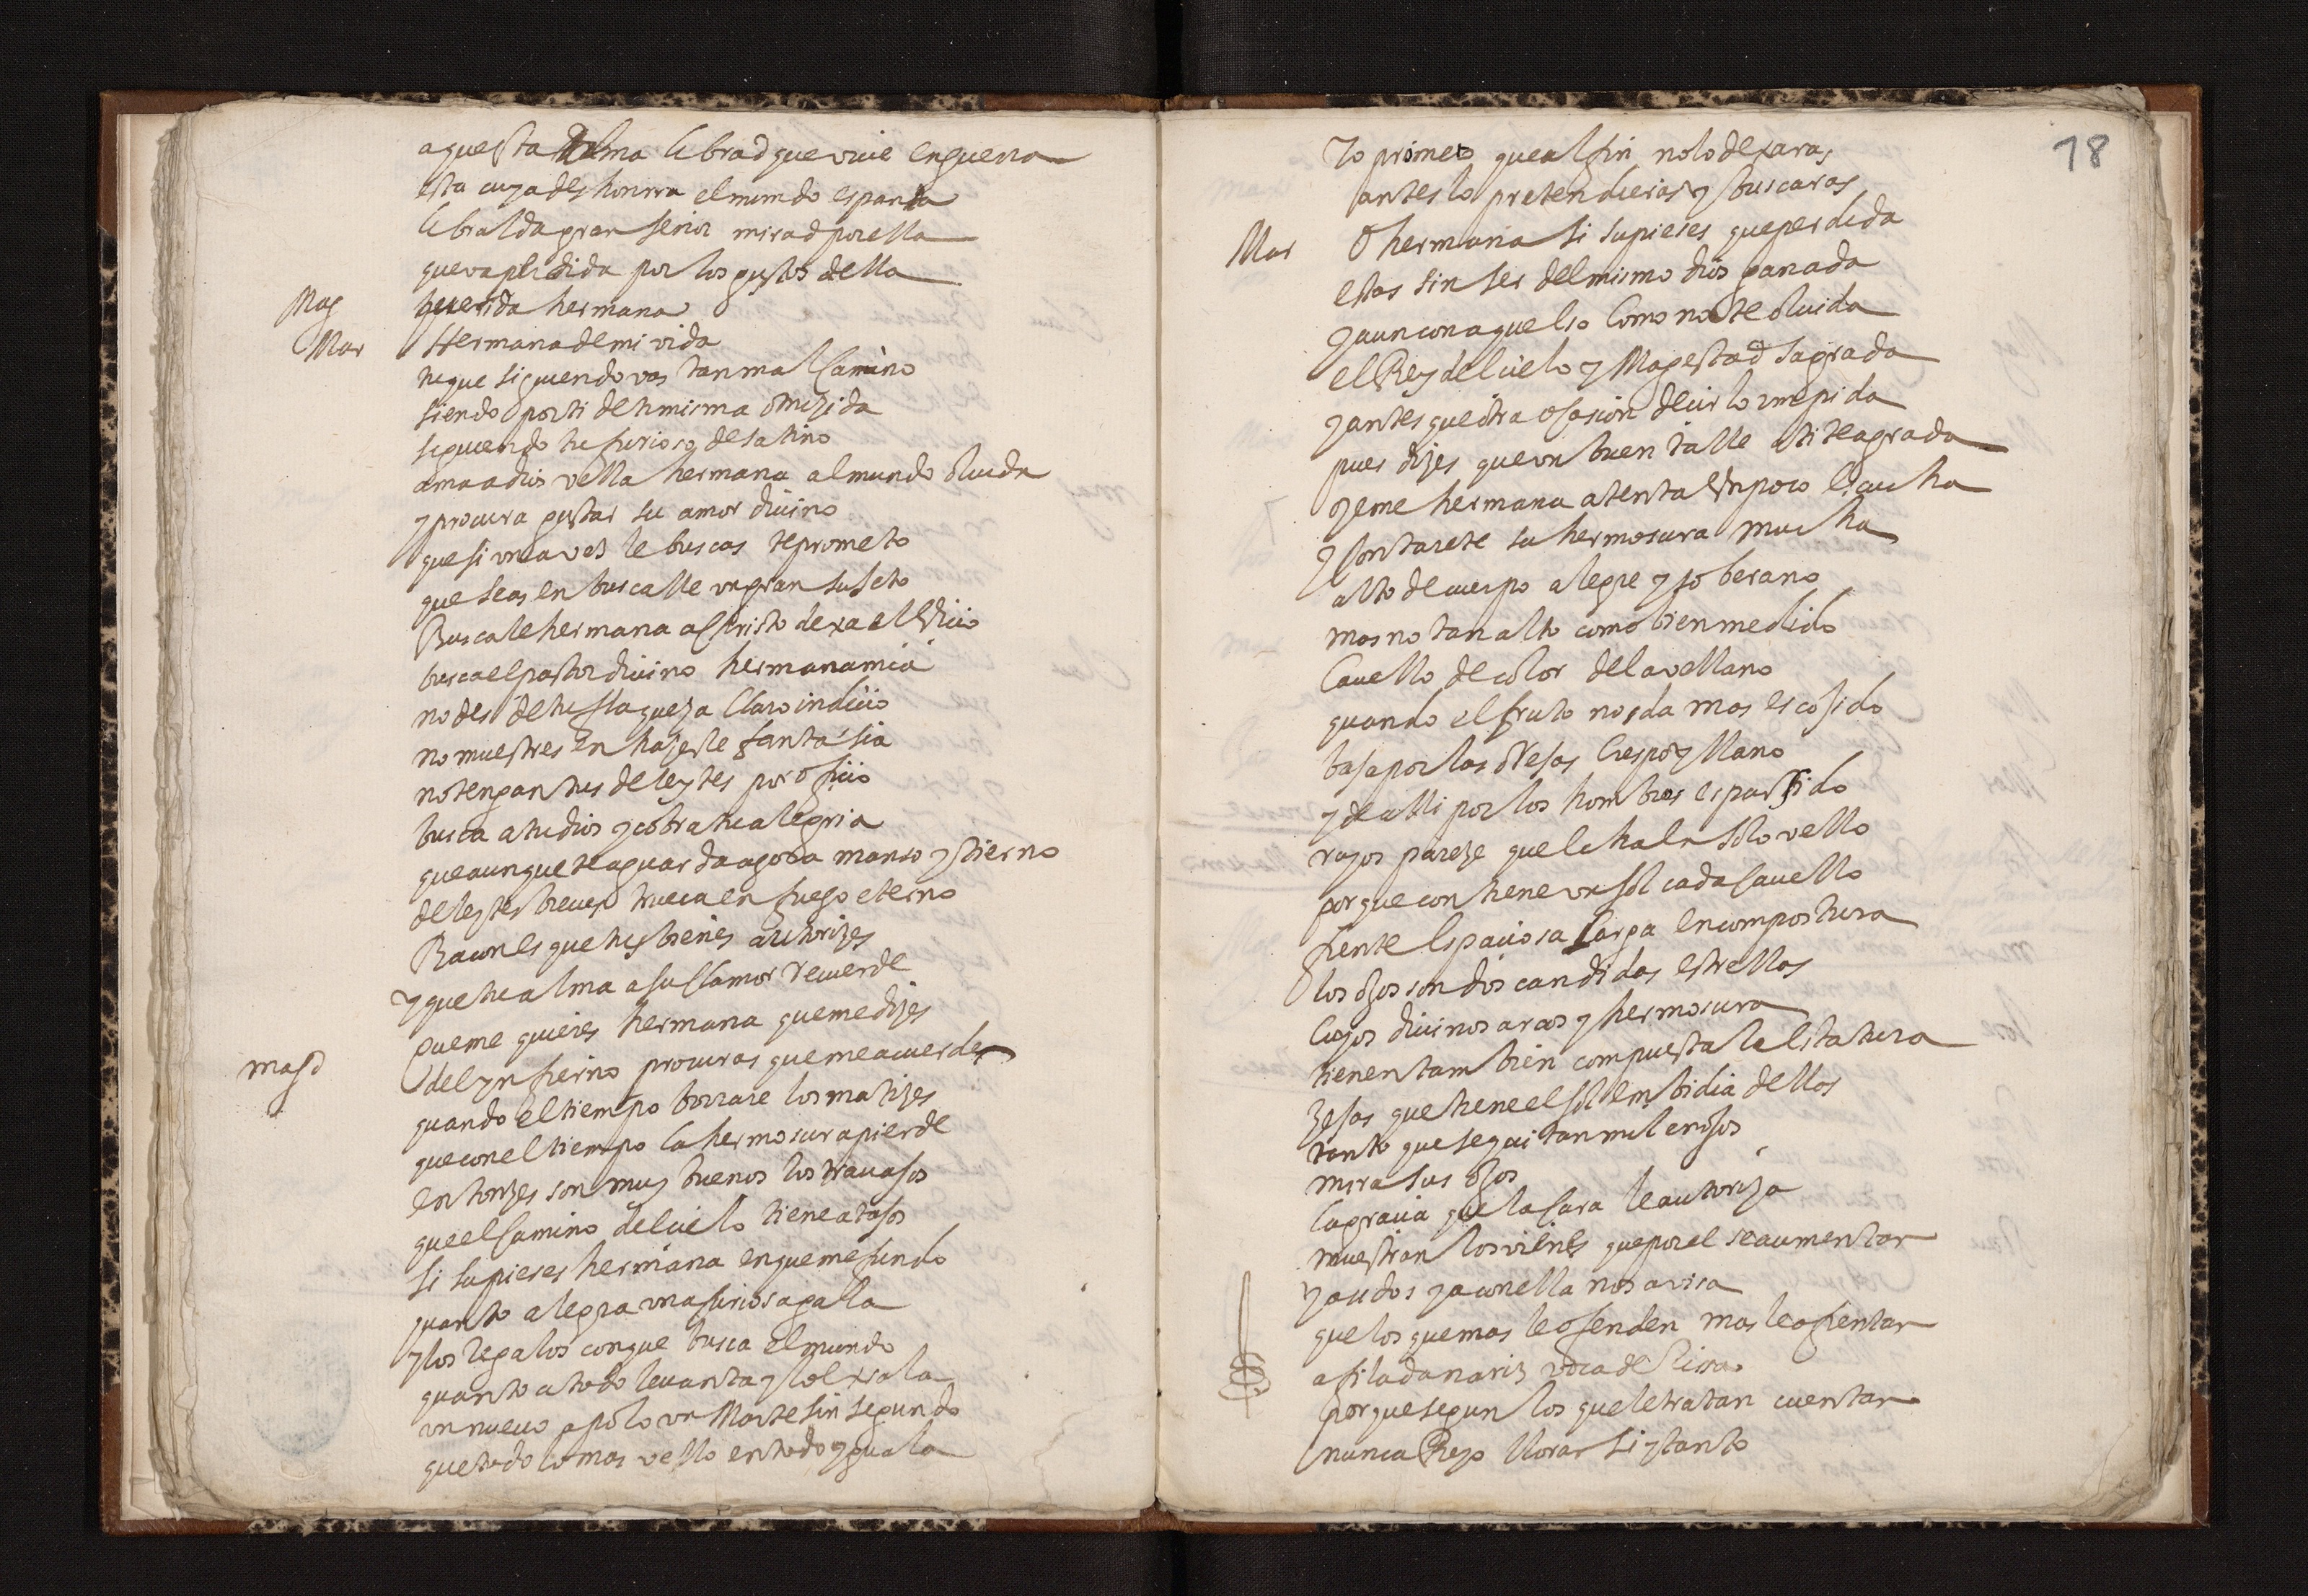 aquesta Alma librad que viue en guerra
esta cuya deshonrra el mundo espanta
libralda gran señor mirad por ella
que va perdida por los gustos della
Mag querida hermana
Mar Hermana de mi vida
tu que siguendo vas tan mal Camino
siendo por ti de ti misma omizida
siguendo tu furioso desatino
ama a dios vella hermana al mundo oluida
y procura gustar su amor diuino
que si vna vez le buscas te prometo
que seas en buscalle vn gran sujeto
Buscale hermana a Christo dexa el Vicio
busca el pastor diuino hermana mia
no des de tu flaqueza Claro indicio
no muestres en hazerte fantasia
no tengan tus deleytes por oficio
busca a tu dios y cobra tu alegria
que aunque te aguarda agora manso y tierno
deleytes breues trueca en fuego eterno
Racon es que tus bienes autorizes
y que tu alma a su Clamor recuerde
Magd que me quieres hermana que me dizes
del ynfierno procuras que me acuerde
quando el tiempo borrare los matizes
que con el tiempo la hermosura pierde
entonzes son muy buenos los trauajos
que el Camino del cielo tiene atajos
si supieses hermana en que me fundo
quanto alegra vna furiosa gala
y los regalos con que busca el mundo
quanto a todo leuanta y lo exsala
vn nueuo apolo vn Marte sin segundo
que todo lo mas vello en todo yguala
18
Yo prometo que al fin no lo dexaras
antes lo pretendieras y buscaras
Mar O hermana si supieses que perdida
estas sin ser del mismo dios ganada
y aun con aquello Como no te oluida
el Rey del cielo y Magestad sagrada
y antes que otra ocasion decirlo ympida
pues dizes que vn buen talle a ti te agrada
oyeme hermana atenta Vn poco escucha
y Contarete su hermosura mucha
alto de cuerpo alegre y soberano
mas no tan alto como bien medido
Cauello de color del avellano
quando el fruto nos da mas escojido
baja por las orejas Crespo y llano
y de alli por los hombros esparsido
rayos pareze que le hale solo vello
porque contiene vn sol cada Cauello
frente Espaciosa larga en compostura
los ojos son dos candidas estrellas
Cuyos diuinos arcos y hermosura
tienen tambien compuesta la Estatura
zejas que tiene el sol embidia dellas
tanto que se quitan mil enojos
mira sus ojos
la gracia que la Cara le autoriza
muestran los vienes que por el se aumentan
y a udos y a con ella nos avisa
que los que mas le ofenden mas le afrentan
afilada nariz voca de Rissa
porque segun los que le tratan cuentan
nunca Rezo llorar si y tanto